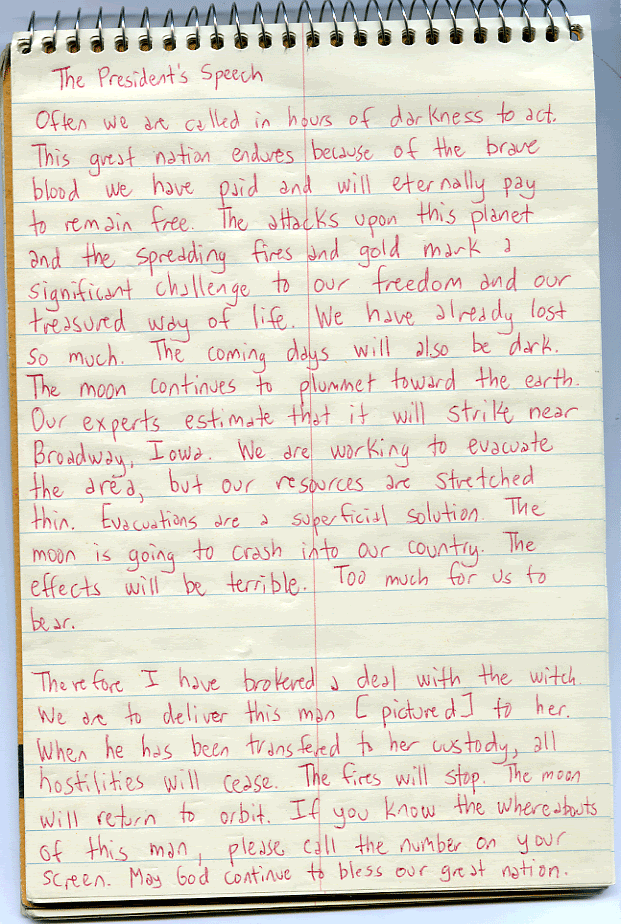 The President's Speech
Often we are called in hours of darkness to act.
This great nation endures because of the brave
blood we have paid and will eternally pay
to remain free. The attacks upon this planet
and the spreading fires and gold mark a
significant challenge to our freedom and our
treasured way of life. We have already lost
so much. The coming days will also be dark.
The moon continues to plummet toward the earth.
Our experts estimate that it will strike near
Broadway, Iowa. We are working to evacuate
the area, but our resources are stretched
thin. Evacuations are a superficial solution. The
moon is going to crash into our country. The
effects will be terrible. Too much for us to
bear.
Therefore I have brokered a deal with the witch.
We are to deliver this man [pictured] to her.
When he has been transfered to her custody, all
hostilities will cease. The fires will stop. The moon
will return to orbit. If you know the whereabouts
of this man, please call the number on your
screen. May God continue to bless our great nation.